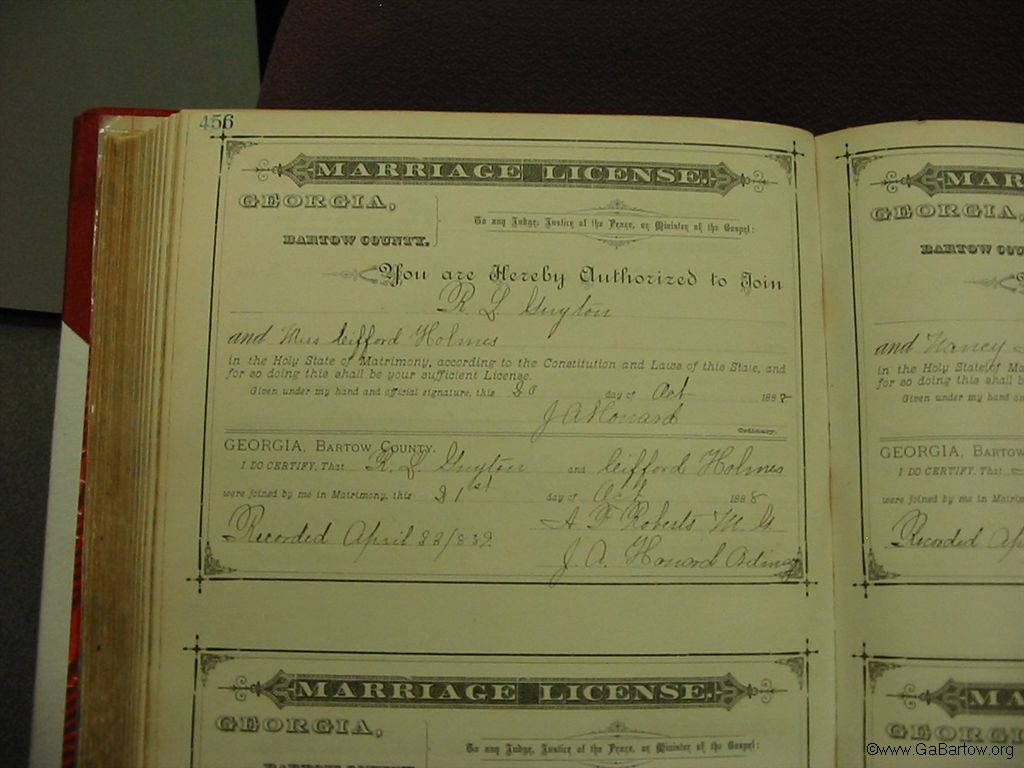 456
MARRIAGE LICENSE.
GEORGIA,
BARTOW COUNTY.
To any Judge, Justice of the Peace, or Minister of the Gospel:
You are Hereby Authorized to Join
R L Guyton
and Miss Gifford Holmes
in the Holy State of Matrimony, according to the Constitution and Laws of this State, and
for so doing this shall be your sufficient License.
Given under my hand and official signature, this day of Oct 188
J A Howard
Ordinary.
GEORGIA, BARTOW COUNTY.
I DO CERTIFY, That R. L. Guyton and Gifford Holmes
were joined by me in Matrimony, this 21st day of Oct 1888
A F Roberts M G
Recorded April
J. A. Howard Ordinary
MARRIAGE LICENSE.
GEORGIA,
BARTOW COUNTY.
To any Judge, Justice of the Peace, or Minister of the Gospel:
MAR
GEORGIA,
BARTOW COU
and Nancy
in the Holy State of Ma
for so doing this shall b
Given under my hand an
GEORGIA, BARTOW
I DO CERTIFY, That
were joined by me in Matrim
Recorded Ap
MA
GEORGIA
©www.GaBartow.org